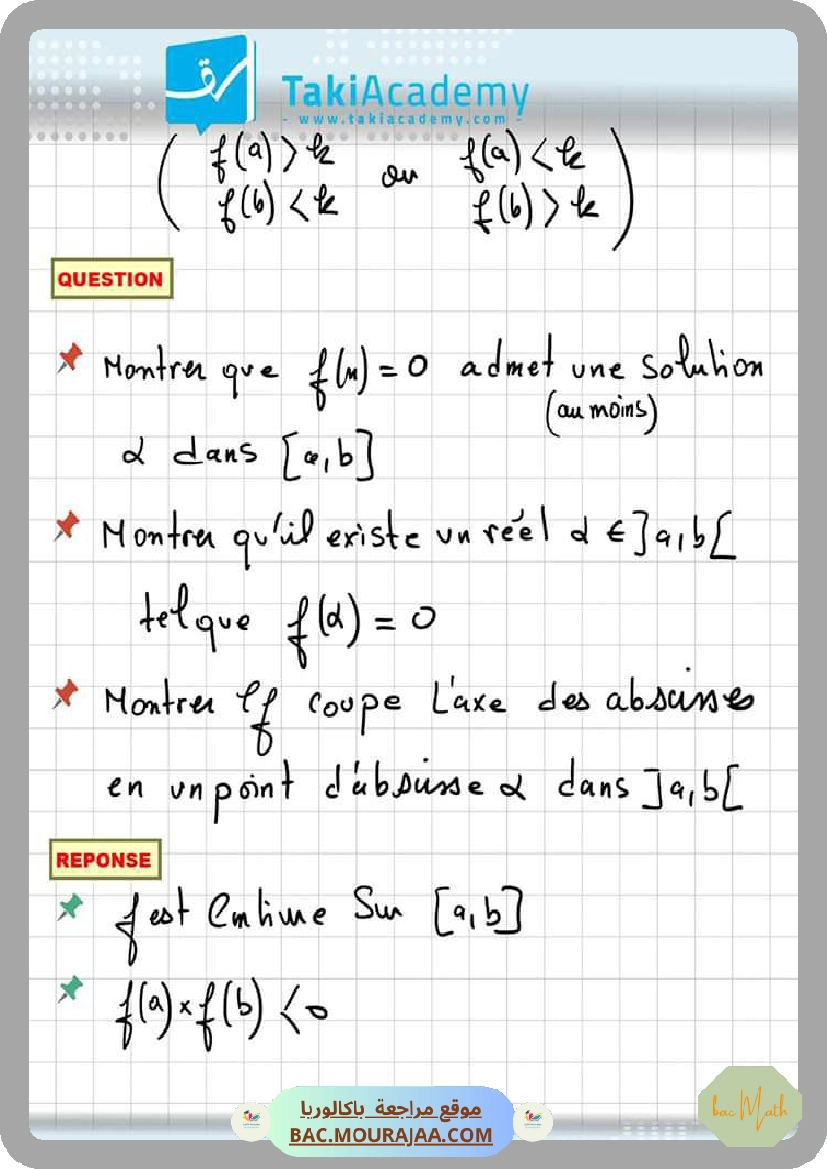 سؤ
TakiAcademy
- www.takiacademy.com -
( f(a) > k ou f(a) < k
f(b) < k f(b) > k )
QUESTION
Montrer que f(x) = 0 admet une solution
(au moins)
α dans [a,b]
Montrer qu'il existe un réel α ∈ ]a,b[
tel que f(α) = 0
Montrer Cf coupe L'axe des abscisses
en un point d'abscisse α dans ]a,b[
REPONSE
f est Continue Sur [a,b]
f(a) × f(b) < 0
موقع مراجعة باكالوريا
BAC.MOURAJAA.COM
bac Math